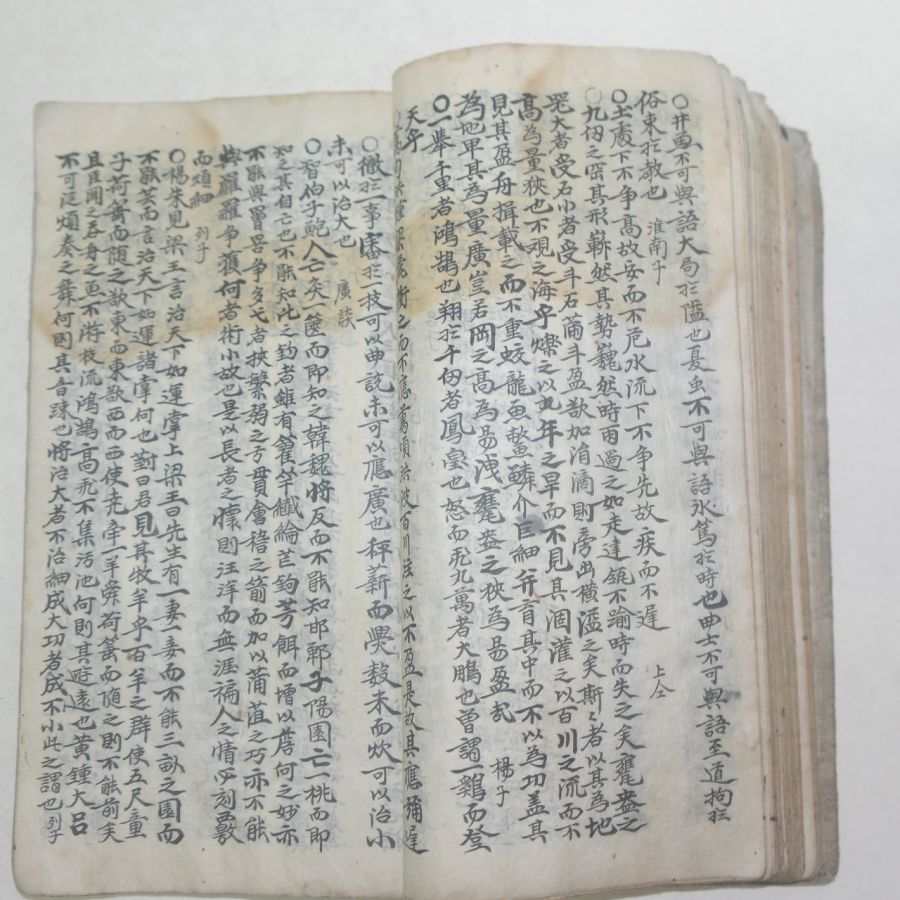 ○井魚不可與語大局於隘也夏虫不可與語氷篤於時也曲士不可與語至道拘於
俗束於教也 淮南子
○土處下不争高故安而不危水流下不争先故疾而不遲 上仝
○九仞之
其形嶄然其勢巍然時雨過之如走達瓴不踰時而失之矣甕盎之
器大者受石小者受斗石蒲斗盈欲加涓滴則旁出横溢之矣斯
者以其為地
高為量狹也不覌之海乎燦之以
年之旱而不見其涸灌之以百川之流而不
見其盈舟揖載之而不重蛟龍魚鱉鱗介巨細并育其中而不以為功盖其
為地卑其為量廣豈若岡之高為易洩甕盎之狹為易盈哉 楊子
○一舉千里者鴻鵠也翔於千仞者鳳皇也怒而飛九萬者大鵬也曾謂一鷄而登
天乎
術之而不應萬頃洪波百川注之以不盈是故其應彌遲
○徹於一事審於一技可以曲說未可以應廣也秤薪而爨数米而炊可以治小
未可以治大也 廣談
○智伯子鮑人亡矣一篋而即知之韓魏將反而不能知邯鄲子陽園亡一桃而即
知之其自亡也不能知此之釣者雖有籊竿纎綸芒鈎芳餌而增以
何之妙亦
不能與罾罟争多弋者挾繁弱之弓貫會稽之箭而加以蒲苴之巧亦不能
與羅羅争獲何者術小故也是以長者之懷則汪洋而無涯褊人之情
刻覈
而煩細 列子
○楊朱見梁王言治天下如運掌上梁王曰先生有一妻一妾而不能三畝之園而
不能芸而言治天下如運諸掌何也對曰君見其牧羊乎百羊之群使五尺童
子荷箠而随之欲東而東欲西而西使尭牵一羊舜荷箠而随之則不能前矣
且臣聞之吞舟之魚不游枝流鴻鵠高飛不集汚池何則其遊遠也黄鍾大呂
不可從煩奏之舞何則其音踈也將治大者不治細成大功者成不小此之謂也 列子